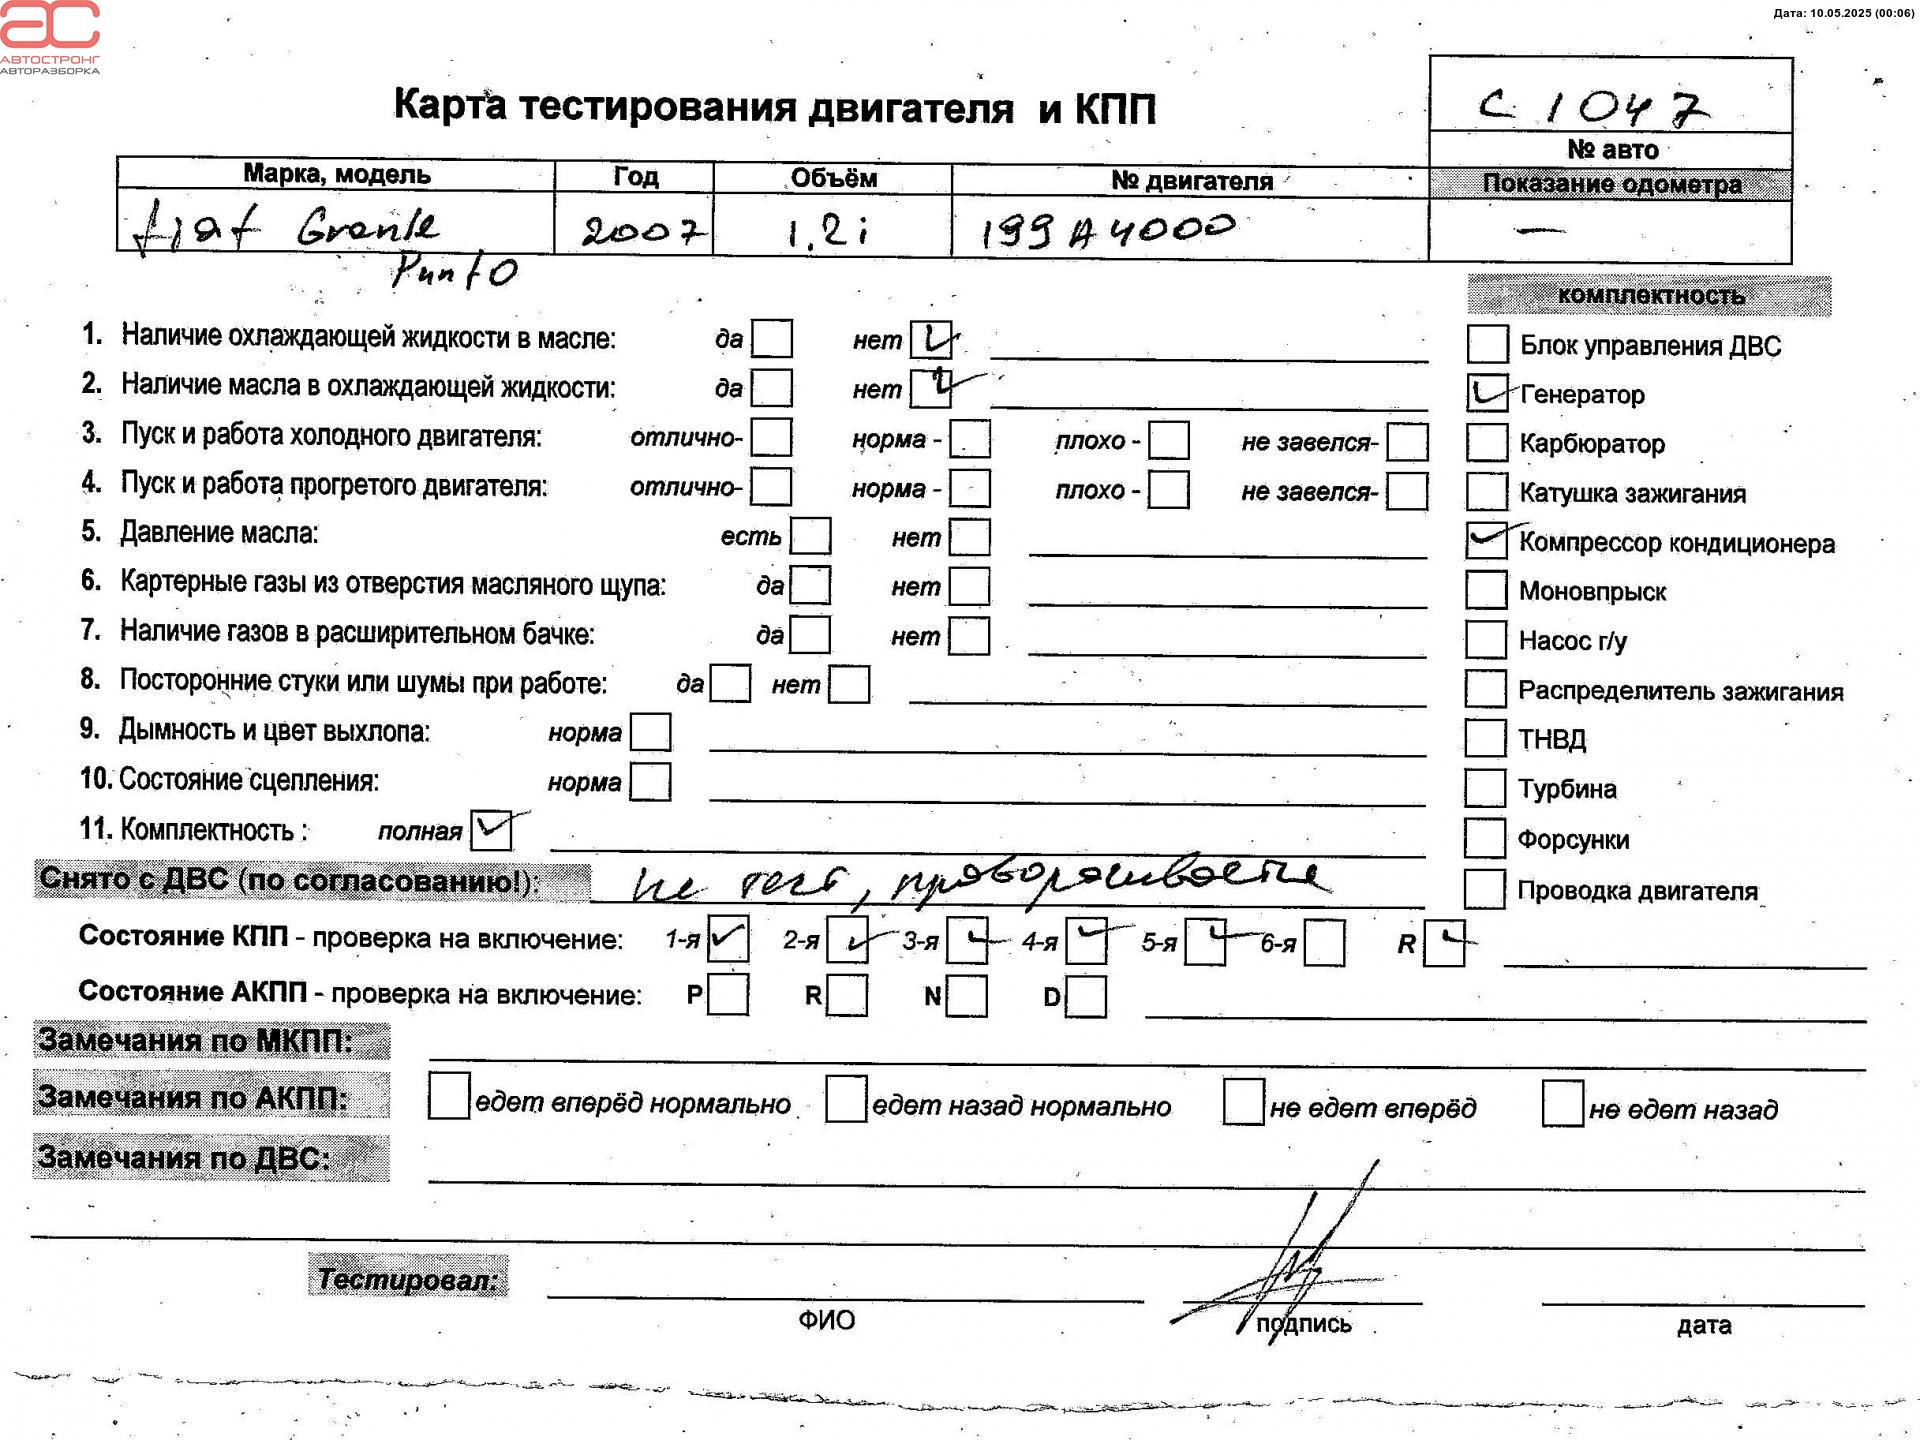 Дата: 10.05.2025 (00:06)
АС
АВТОСТРОНГ
АВТОРАЗБОРКА
Карта тестирования двигателя и КПП
С 1047
№ авто
Марка, модель Год Объём № двигателя Показание одометра
fiat Grande 2007 1.2i 199A4000 —
Punto
комплектность
1. Наличие охлаждающей жидкости в масле: да нет
Блок управления ДВС
2. Наличие масла в охлаждающей жидкости: да нет
Генератор
3. Пуск и работа холодного двигателя: отлично- норма - плохо - не завелся-
Карбюратор
4. Пуск и работа прогретого двигателя: отлично- норма - плохо - не завелся-
Катушка зажигания
5. Давление масла: есть нет
Компрессор кондиционера
6. Картерные газы из отверстия масляного щупа: да нет
Моновпрыск
7. Наличие газов в расширительном бачке: да нет
Насос г/у
8. Посторонние стуки или шумы при работе: да нет
Распределитель зажигания
9. Дымность и цвет выхлопа: норма
ТНВД
10. Состояние сцепления: норма
Турбина
11. Комплектность : полная
Форсунки
Снято с ДВС (по согласованию!): не тест,
Проводка двигателя
Состояние КПП - проверка на включение: 1-я 2-я 3-я 4-я 5-я 6-я R
Состояние АКПП - проверка на включение: P R N D
Замечания по МКПП:
Замечания по АКПП: едет вперёд нормально едет назад нормально не едет вперёд не едет назад
Замечания по ДВС:
Тестировал:
ФИО подпись дата